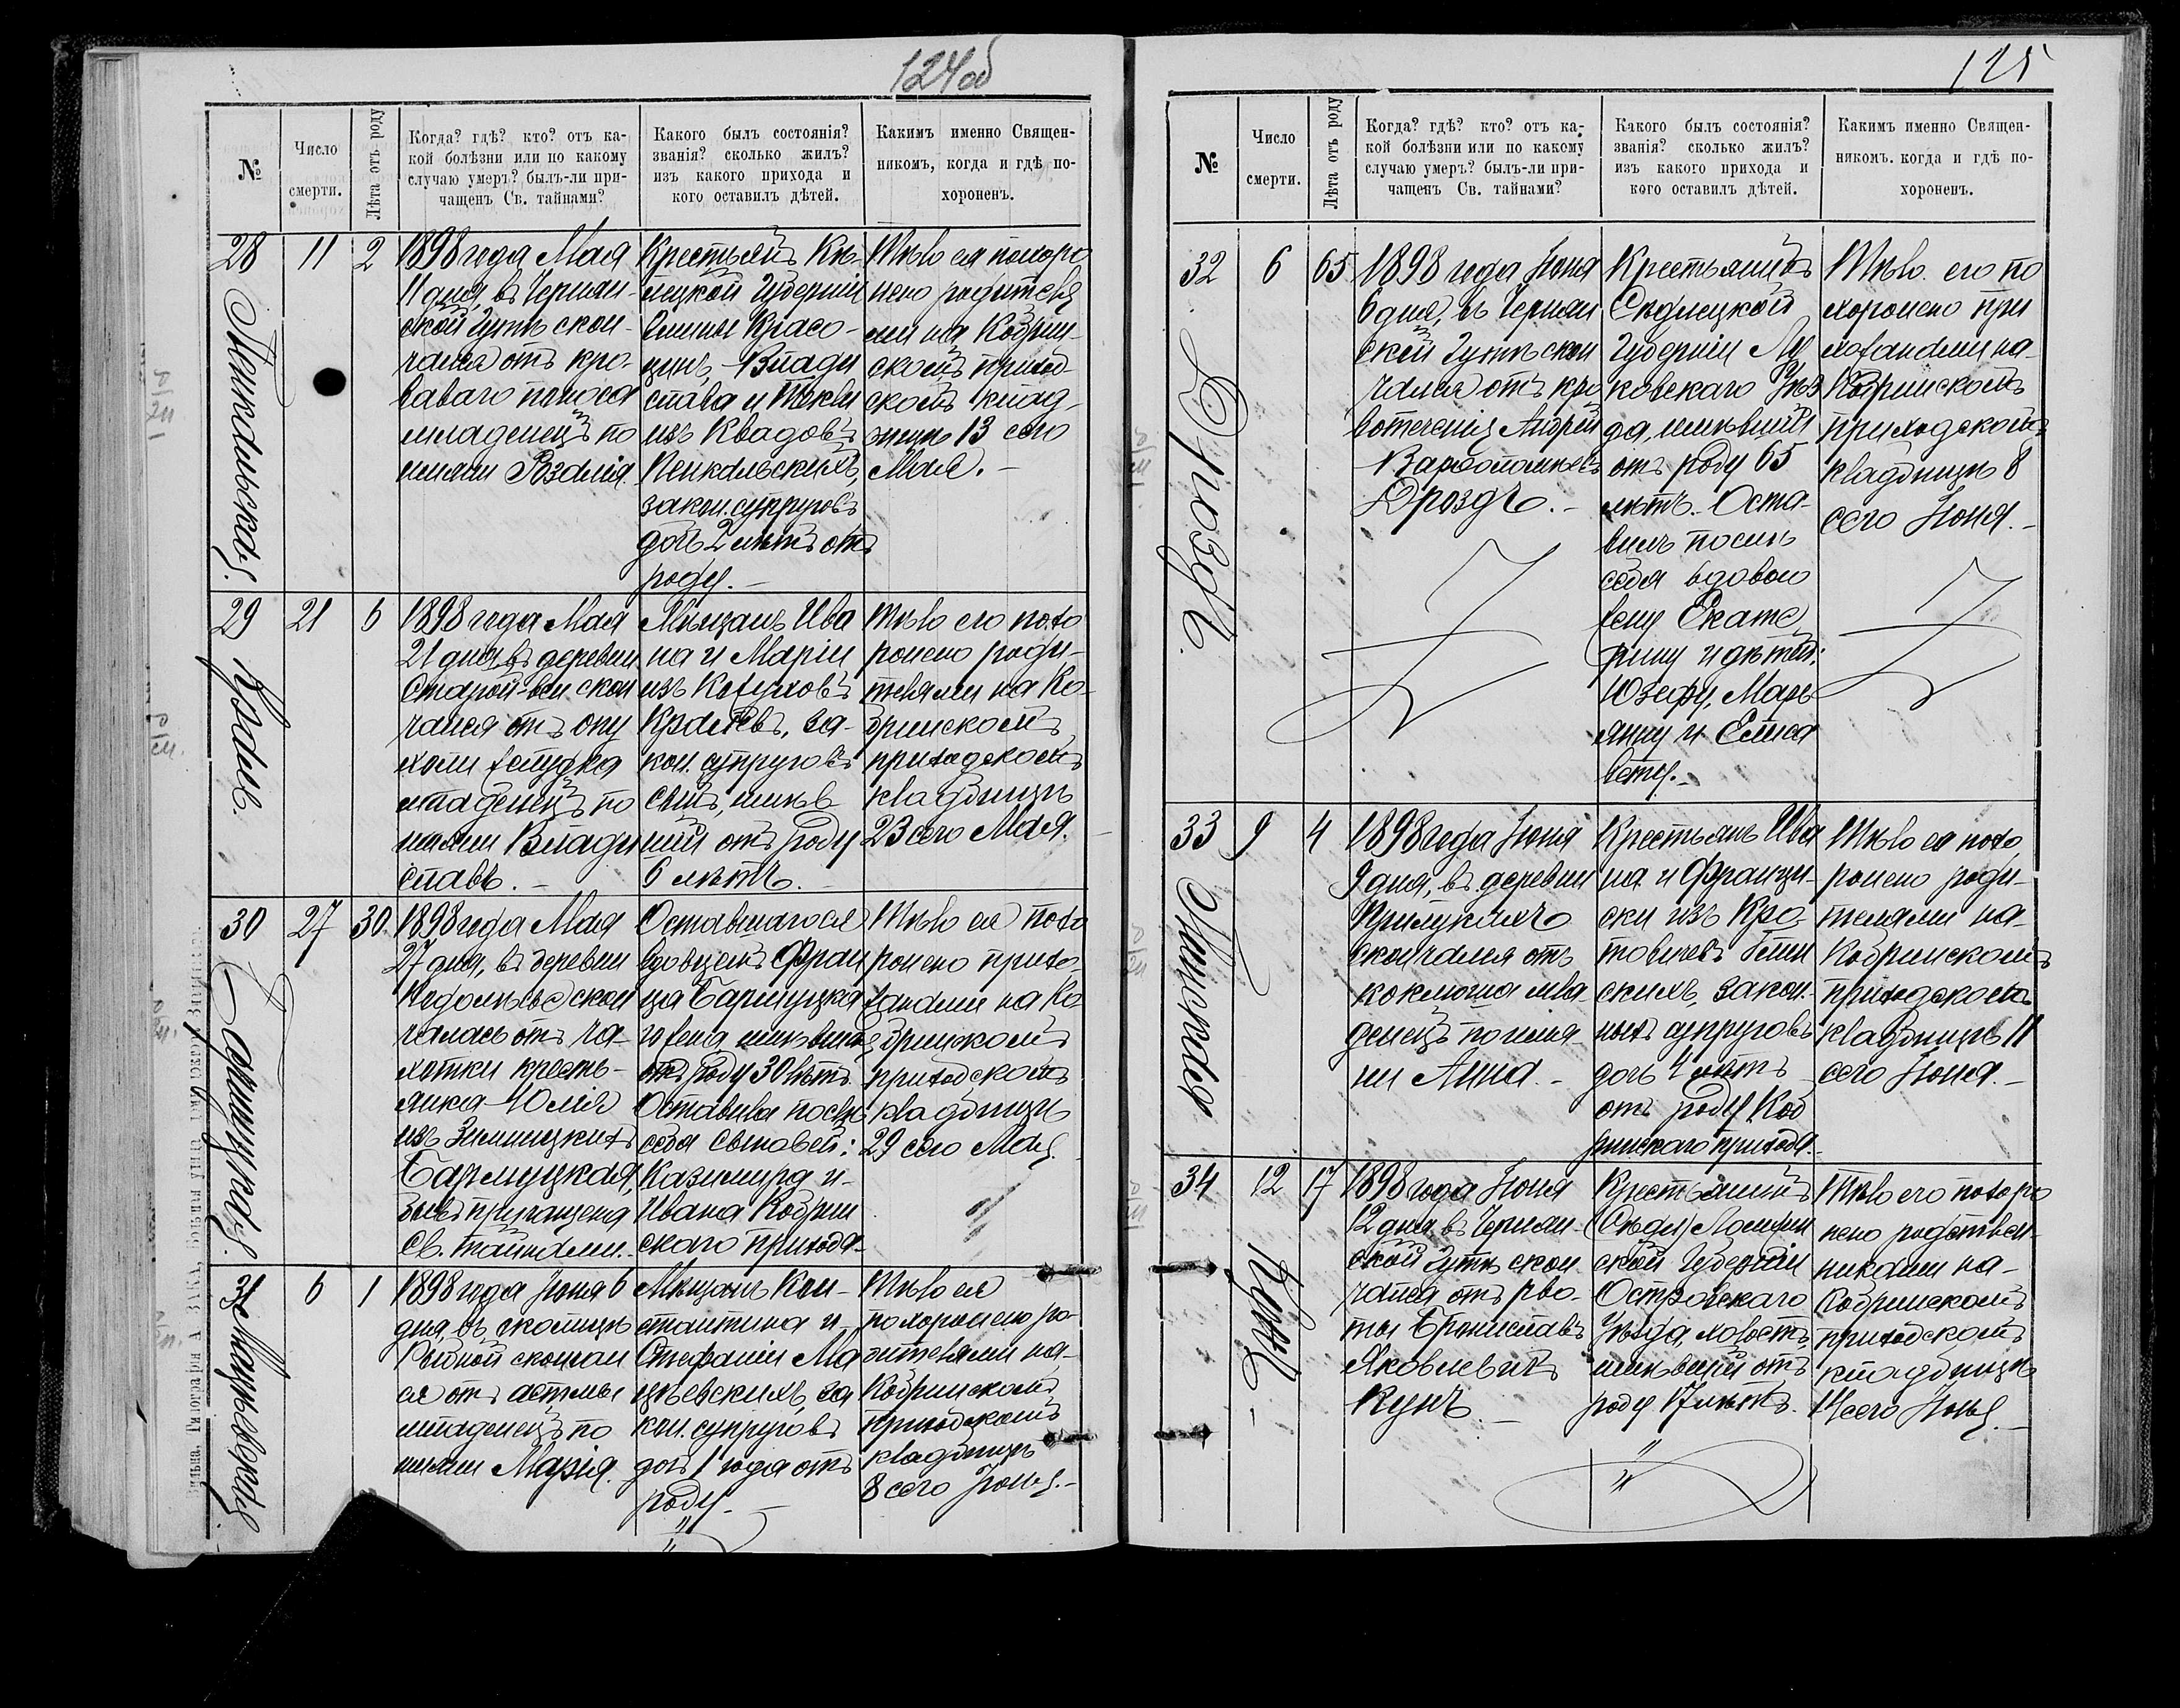 124об
№
Число
смерти.
Лѣта отъ роду
Когда? гдѣ? кто? отъ ка-
кой болѣзни или по какому
случаю умеръ? былъ-ли при-
чащенъ Св. тайнами?
Какого былъ состоянія?
званія? сколько жилъ?
изъ какого прихода и
кого оставилъ дѣтей.
Какимъ именно Священ-
никомъ, когда и гдѣ по-
хороненъ.
28
11
2
1898 года Мая
11 дня, въ Чернян-
ской Гутѣ скон-
чался отъ кро-
ваваго поноса
младенецъ по
имени Розалія.
Крестьянъ Кѣ-
лецкой Губерніи
Гмины Красо-
цинъ, Влади
слава и Теклы
изъ Квадовъ
Пенкальскихъ,
закон. супруговъ
дочь 2 лѣтъ отъ
роду.
Тѣло ея похоро
нено родителя
ми на Кобрин-
скомъ приход-
скомъ клад-
бищѣ 13 сего
Мая.
29
Кроль.
21
6
1898 года Мая
21 дня въ деревни
Старой-вси скон
чался отъ опу
холи желудка
младенецъ по
имени Влади
славъ.
Мѣщанъ Ива
на и Маріи
изъ Кожуховъ
Кролевъ, за-
кон. супруговъ
сынъ, имѣв
шій отъ роду
6 лѣтъ.
Тѣло его похо
ронено роди-
телями на Ко-
бринскомъ
приходскомъ
кладбищѣ
23 сего Мая.
30
27
30.
1898 года Мая
27 дня, въ деревни
скон
чалась отъ ча-
хотки кресть-
янка Юлія
изъ Зимницкихъ
Бармуцкая,
бывъ причащена
Св. тайнами.
Оставшагося
вдовцемъ Фран
ца Бармуцка
го жена, имѣвшая
отъ роду 30 лѣтъ.
Оставила послѣ
себя сыновей:
Казимира и
Ивана Кобрин
скаго прихода.
Тѣло ея похо
ронено прихо-
жанами на Ко
бринскомъ
приходскомъ
кладбищѣ
29 сего Мая.
31
6
1
1898 года Іюня 6
дня, въ околицѣ
Рыбной скончал
ся отъ астмы
младенецъ по
имени Марія.
Мѣщанъ Кон-
стантина и
Стефаніи Ма
цѣевскихъ, за
кон. супруговъ
дочь 1 года отъ
роду.
Тѣло ея
похоронено ро-
дителями на
Кобринскомъ
приходскомъ
кладбищѣ
8 сего Іюня.
125
№
Число
смерти.
Лѣта отъ роду
Когда? гдѣ? кто? отъ ка-
кой болѣзни или по какому
случаю умеръ? былъ-ли при-
чащенъ Св. тайнами?
Какого былъ состоянія?
званія? сколько жилъ?
изъ какого прихода и
кого оставилъ дѣтей.
Какимъ именно Священ-
никомъ. когда и гдѣ по-
хороненъ.
32
Дроздъ.
6
65
1898 года Іюня
6 дня, въ Чернян
ской Гутѣ скон
чался отъ кро
вотеченія Андрей
Варѳоломѣевъ
Дроздъ.
Крестьянинъ
Сѣдлецкой
Губерніи Лу
ковскаго Уѣз
да, имѣвшій
отъ роду 65
лѣтъ. Оста-
вилъ послѣ
себя вдовою
жену Екате
рину и дѣтей:
Юзефу, Марь
янну и Елиса
вету.
Тѣло его по
хоронено при
хожанами на
Кобринскомъ
приходскомъ
кладбищѣ 8
сего Іюня.
33
9
4
1898 года Іюня
9 дня, въ деревни
Прилукахъ
скончался отъ
коклюша мла-
денецъ по име-
ни Анна.
Крестьянъ Ива
на и Францис-
ки изъ
закон-
ныхъ супруговъ
дочь 4 лѣтъ
отъ роду Коб
ринскаго прихода.
Тѣло ея похо
ронено роди-
телями на
Кобринскомъ
приходскомъ
кладбищѣ 11
сего Іюня.
34
Кунъ
12
17
1898 года Іюня
12 дня, въ Чернян-
ской Гутѣ скон
чался отъ рво-
ты Брониславъ
Яковлевичъ
Кунъ.
Крестьянинъ
Ломжин
ской Губерніи
Островскаго
Уѣзда, холостъ,
имѣвшій отъ
роду 17 лѣтъ.
Тѣло его похоро
нено родствен-
никами на
Кобринскомъ
приходскомъ
кладбищѣ
14 сего Іюня.